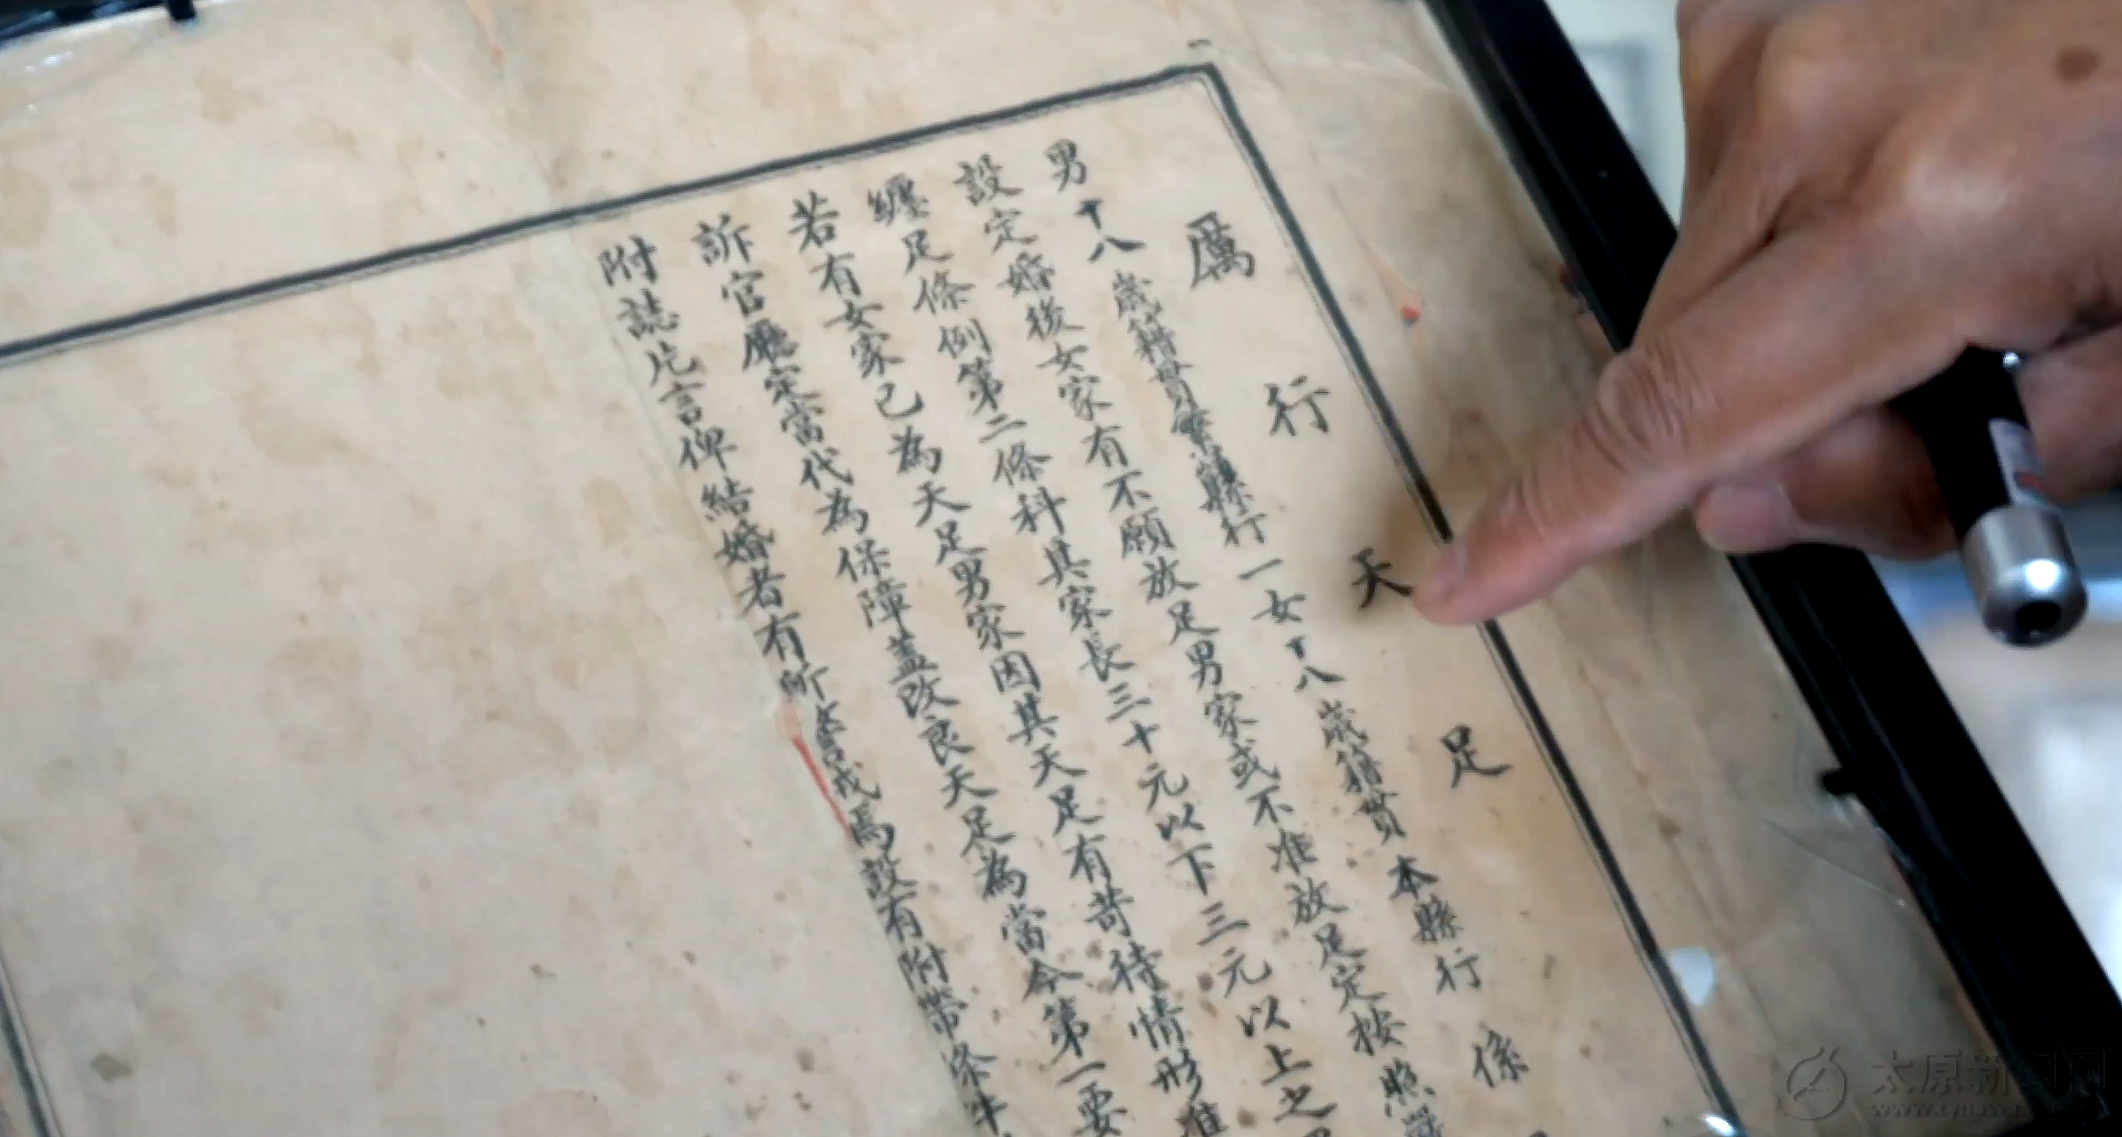 厲行天足
男十八歲籍貫本縣行一女十八歲籍貫本縣行 係
設定婚後女家有不願放足男家或不准放足定按照嚴
纏足條例第二條科其家長三十元以下三元以上之
若有女家已為天足男家因其天足有苛待情形准
訴官廳定當代為保障蓋改良天足為當今第一要
附誌片言俾結婚者有所
焉設有附帶條件
太原新闻网